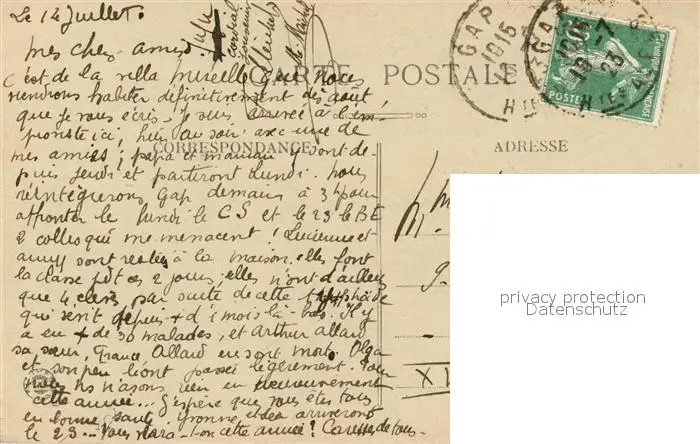 Le 14 Juillet.
Mes chers amis.
Cordial
Souvenir
CARTE POSTALE
C'est de la villa Mireille que nous
viendrons habiter définitivement dès août
que je vous écris. Je suis arrivée à l'im-
proviste ici, hier au soir avec une de
mes amies; papa et maman y sont de-
CORRESPONDANCE
ADRESSE
puis jeudi et partiront lundi. Nous
réintégrerons Gap demain à 3h pour
affronter le lundi le CS et le 23 le BE
2 colles qui me menacent! Lucienne et
sont restées à la maison. elles font
la classe ces 2 jours; elles n'ont d'ailleurs
que 4 élèves par suite de cette
qui sévit depuis + d'1 mois là-bas. Il y
a eu + de 30 malades, et Arthur Allard
sa sœur, France Allard en sont morts. Olga
et son l'ont passée légèrement. Pour
nous ns n'avons rien eu heureusement
cette année... J'espère que vous êtes tous
en bonne santé. Yvonne arriveront
le 23... Vous verra-t-on cette année? Caresses de tous.
GAP
GAP
POSTES
M
X V
privacy protection
Datenschutz